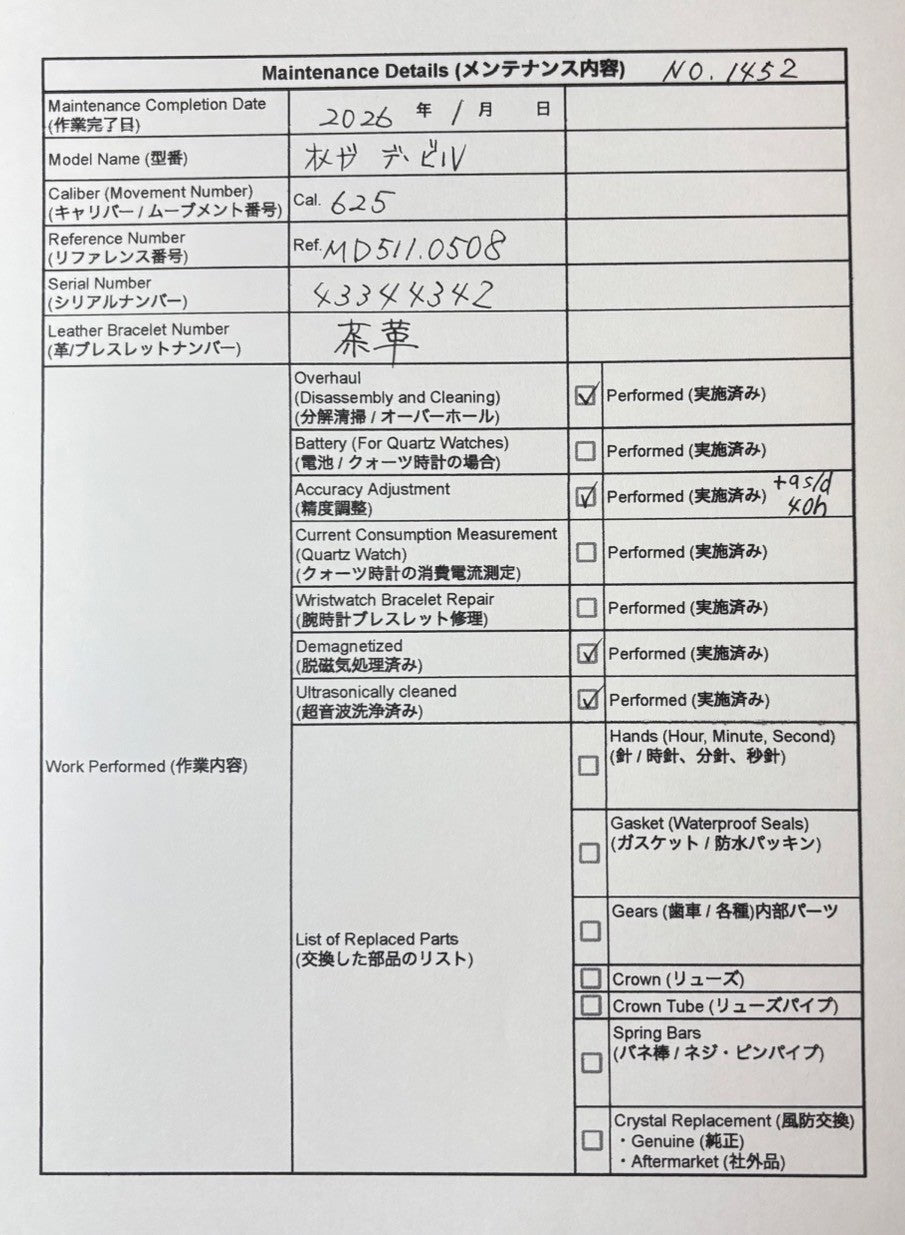 Maintenance Details (メンテナンス内容) NO. 1452
Maintenance Completion Date
(作業完了日)
2026 年 1 月 日
Model Name (型番)
オメガ デ・ビル
Caliber (Movement Number)
(キャリバー / ムーブメント番号)
Cal. 625
Reference Number
(リファレンス番号)
Ref. MD511.0508
Serial Number
(シリアルナンバー)
43344342
Leather Bracelet Number
(革/ブレスレットナンバー)
茶革
Work Performed (作業内容)
Overhaul
(Disassembly and Cleaning)
(分解清掃 / オーバーホール)
Performed (実施済み)
Battery (For Quartz Watches)
(電池 / クォーツ時計の場合)
Performed (実施済み)
Accuracy Adjustment
(精度調整)
Performed (実施済み) +9s/d
40h
Current Consumption Measurement
(Quartz Watch)
(クォーツ時計の消費電流測定)
Performed (実施済み)
Wristwatch Bracelet Repair
(腕時計ブレスレット修理)
Performed (実施済み)
Demagnetized
(脱磁気処理済み)
Performed (実施済み)
Ultrasonically cleaned
(超音波洗浄済み)
Performed (実施済み)
List of Replaced Parts
(交換した部品のリスト)
Hands (Hour, Minute, Second)
(針 / 時針、分針、秒針)
Gasket (Waterproof Seals)
(ガスケット / 防水パッキン)
Gears (歯車 / 各種)内部パーツ
Crown (リューズ)
Crown Tube (リューズパイプ)
Spring Bars
(バネ棒 / ネジ・ピンパイプ)
Crystal Replacement (風防交換)
・Genuine (純正)
・Aftermarket (社外品)